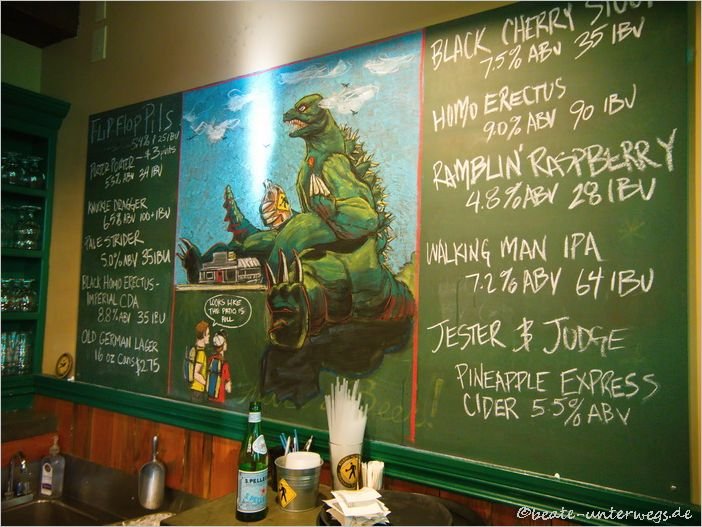 FLIP FLOP PILS
5.4% | 25 IBU
PORTER PORTER - $3 pints
5.5% ABV 34 IBU
KNUCKLE DRAGGER
6.5% ABV 100+ IBU
PALE STRIDER
5.0% ABV 35 IBU
BLACK HOMO ERECTUS -
IMPERIAL CDA
8.8% ABV 35 IBU
OLD GERMAN LAGER
16 oz Cans $2.75
LOOKS LIKE
THE PATIO IS
FULL
Beer!
BLACK CHERRY STOUT
7.5% ABV 35 IBU
HOMO ERECTUS
9.0% ABV 90 IBU
RAMBLIN' RASPBERRY
4.8% ABV 28 IBU
WALKING MAN IPA
7.2% ABV 64 IBU
JESTER & JUDGE
PINEAPPLE EXPRESS
CIDER 5.5% ABV
S.PELLE
©beate-unterwegs.de